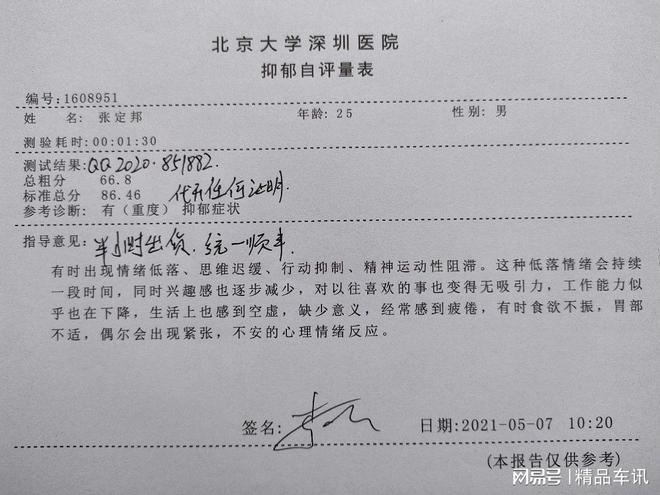 北京大学深圳医院
抑郁自评量表
编号:1608951
姓 名: 张定邦 年龄:25 性别:男
测验耗时:00:01:30
测试结果:QQ2020·851882.
总粗分 66.8
标准总分 86.46 代开任何证明.
参考诊断: 有（重度）抑郁症状
指导意见: 半小时出货.统一顺丰
有时出现情绪低落、思维迟缓、行动抑制、精神运动性阻滞。这种低落情绪会持续
一段时间，同时兴趣感也逐步减少，对以往喜欢的事也变得无吸引力，工作能力似
乎也在下降，生活上也感到空虚，缺少意义，经常感到疲倦，有时食欲不振，胃部
不适，偶尔会出现紧张，不安的心理情绪反应。
签名: 日期:2021-05-07 10:20
(本报告仅供参考)
网易号 | 精品车讯